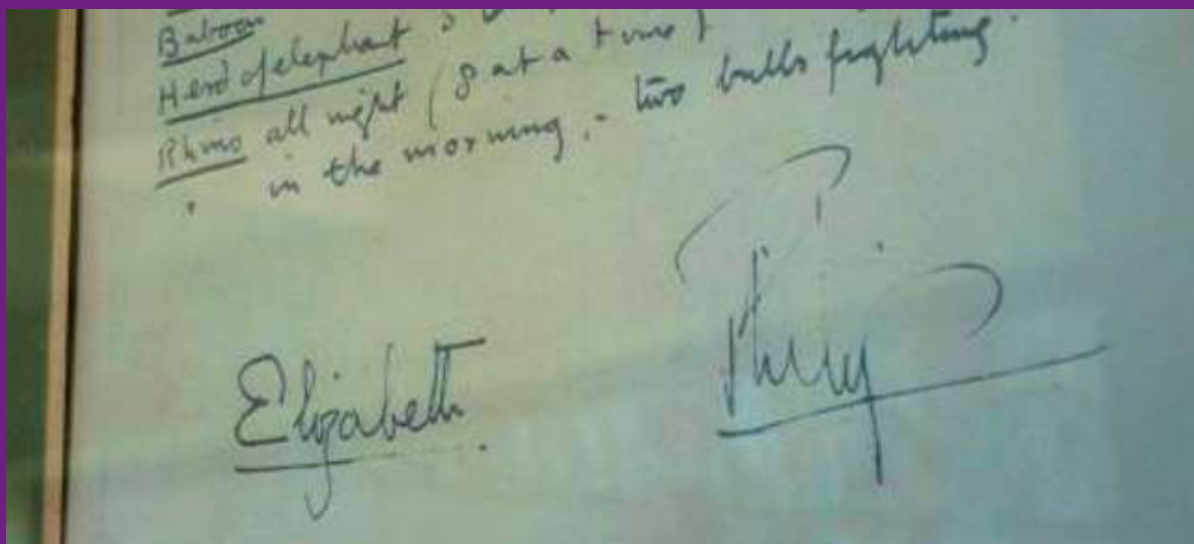 Baboon
Herd of elephant
Rhino all night (8 at a time)
" in the morning, - two bulls fighting.
Elizabeth
Philip